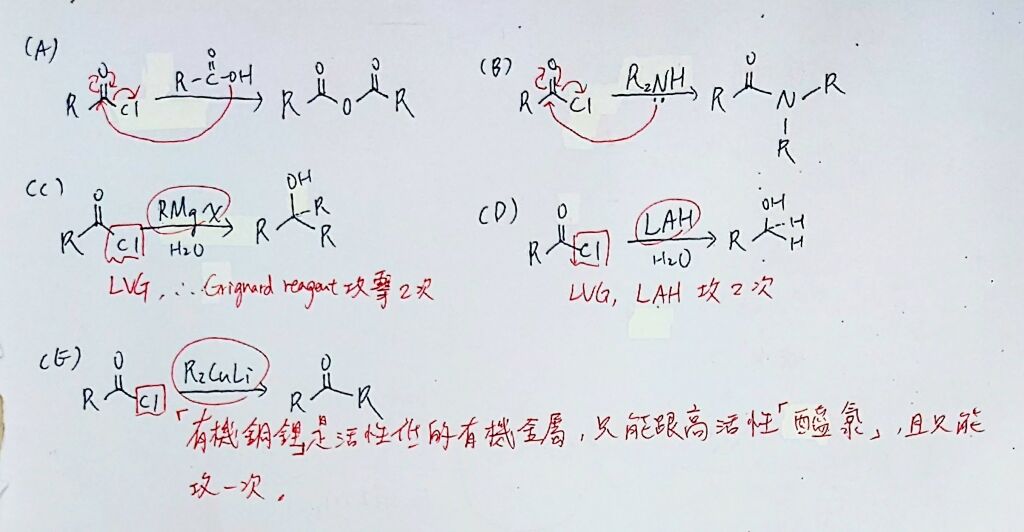 (A)
R O Cl R-C-OH O R O O O R
(B)
R O Cl R₂NH R O N R R
(C)
R O Cl RMgX H₂O R OH R R
LVG, ∴ Grignard reagent 攻擊2次
(D)
R O Cl LAH H₂O R OH H H
LVG, LAH 攻2次
(E)
R O Cl R₂CuLi R O R
「有機銅鋰」是活性低的有機金屬,只能跟高活性「醯氯」,且只能
攻一次。